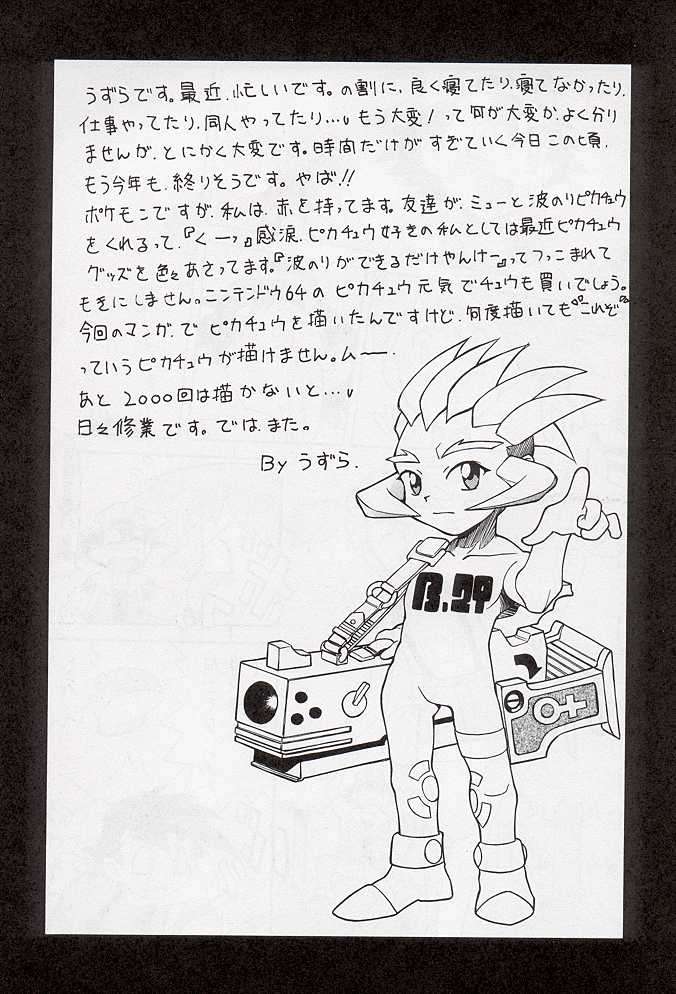 うずらです。最近、忙しいです。の割に、良く寝てたり、寝てなかったり、
仕事やってたり、同人やってたり…もう大変！って何が大変か、よく分り
ませんが、とにかく大変です。時間だけがすぎていく今日この頃、
もう今年も、終りそうです。やば！！
ポケモンですが、私は、赤を持ってます。友達が、ミューと波のりピカチュウ
をくれるって、『くーっ』感涙、ピカチュウ好きの私としては最近ピカチュウ
グッズを色々あさってます。『波のりができるだけやんけー』ってつっこまれて
もきにしません。ニンテンドウ64のピカチュウ元気でチュウも買いでしょう。
今回のマンガ、でピカチュウを描いたんですけど、何度描いても“これぞ”
っていうピカチュウが描けません。ムー、
あと2000回は描かないと…
日々修業です。では、また。
By うずら.